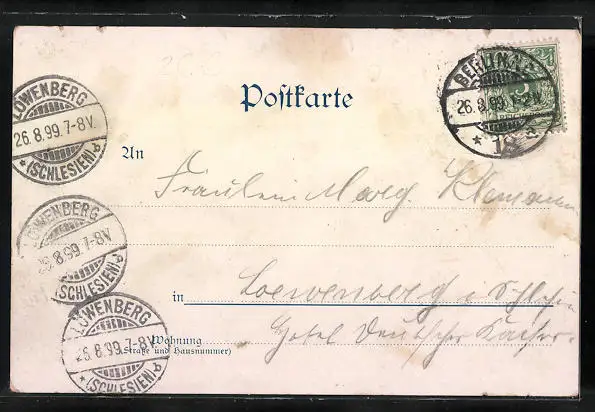 LÖWENBERG
26.8.99.7-8V.
* (SCHLESIEN). a
BERLIN N.
26.8.99.1-2V.
Postkarte
An
Fräulein Marg. Klemann
LÖWENBERG
8.99.7-8V.
(SCHLESIEN). a
in Loewenberg i. Schlesien
LÖWENBERG
26.8.99.7-8V.
* (SCHLESIEN). a
Wohnung
(Straße und Hausnummer)
Hotel Deutscher Kaiser.